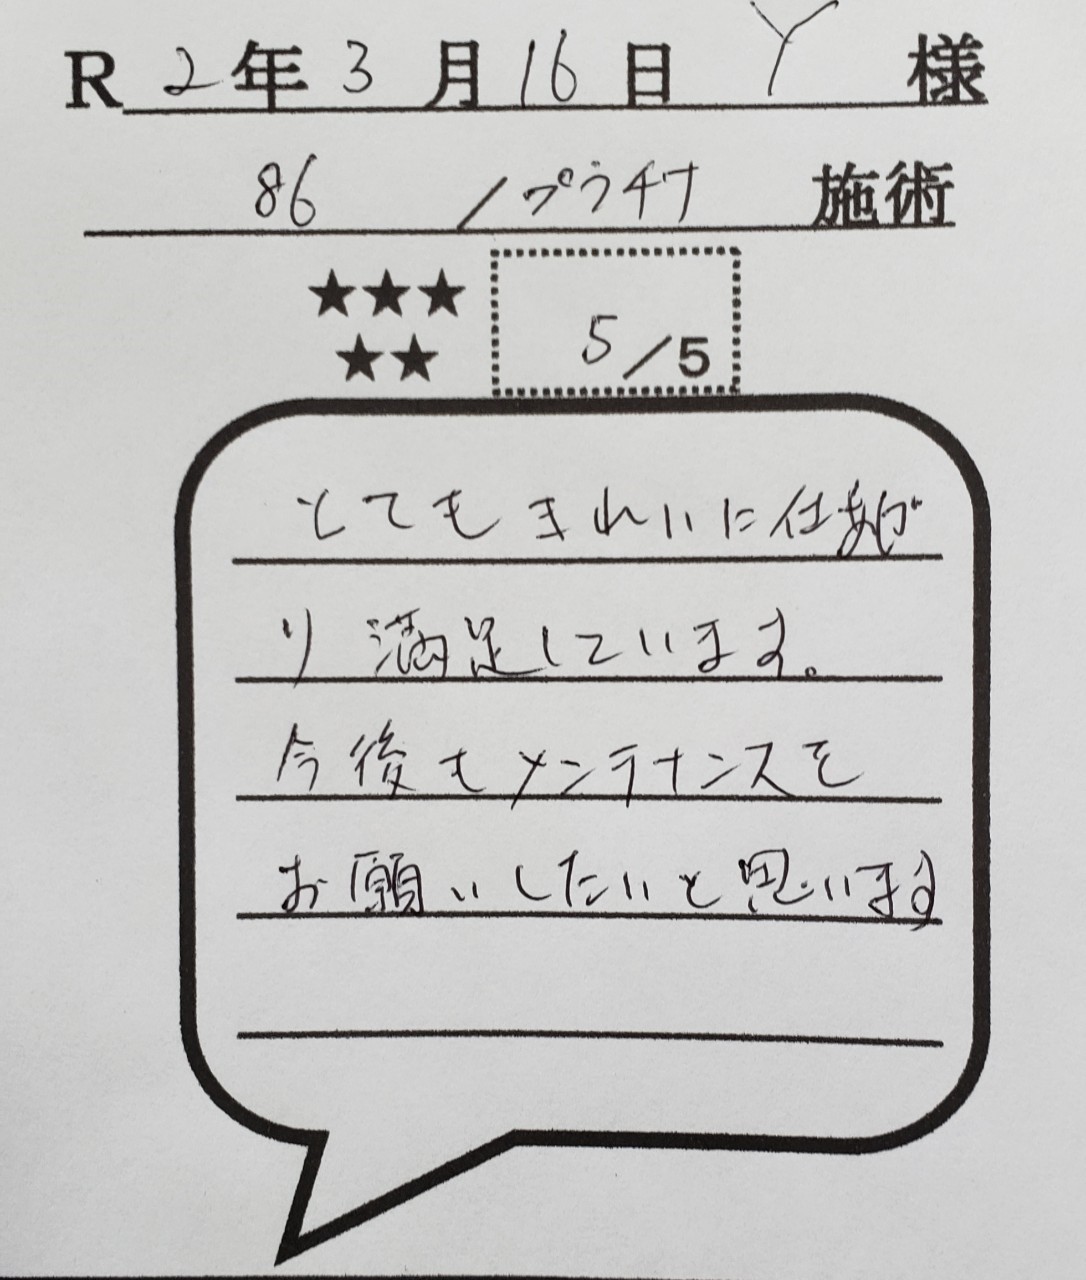 R 2年 3月 16日 Y 様
86 /プラチナ 施術
★★★
★★
5/5
とてもきれいに仕あが
り 満足しています。
今後もメンテナンスを
お願いしたいと思います